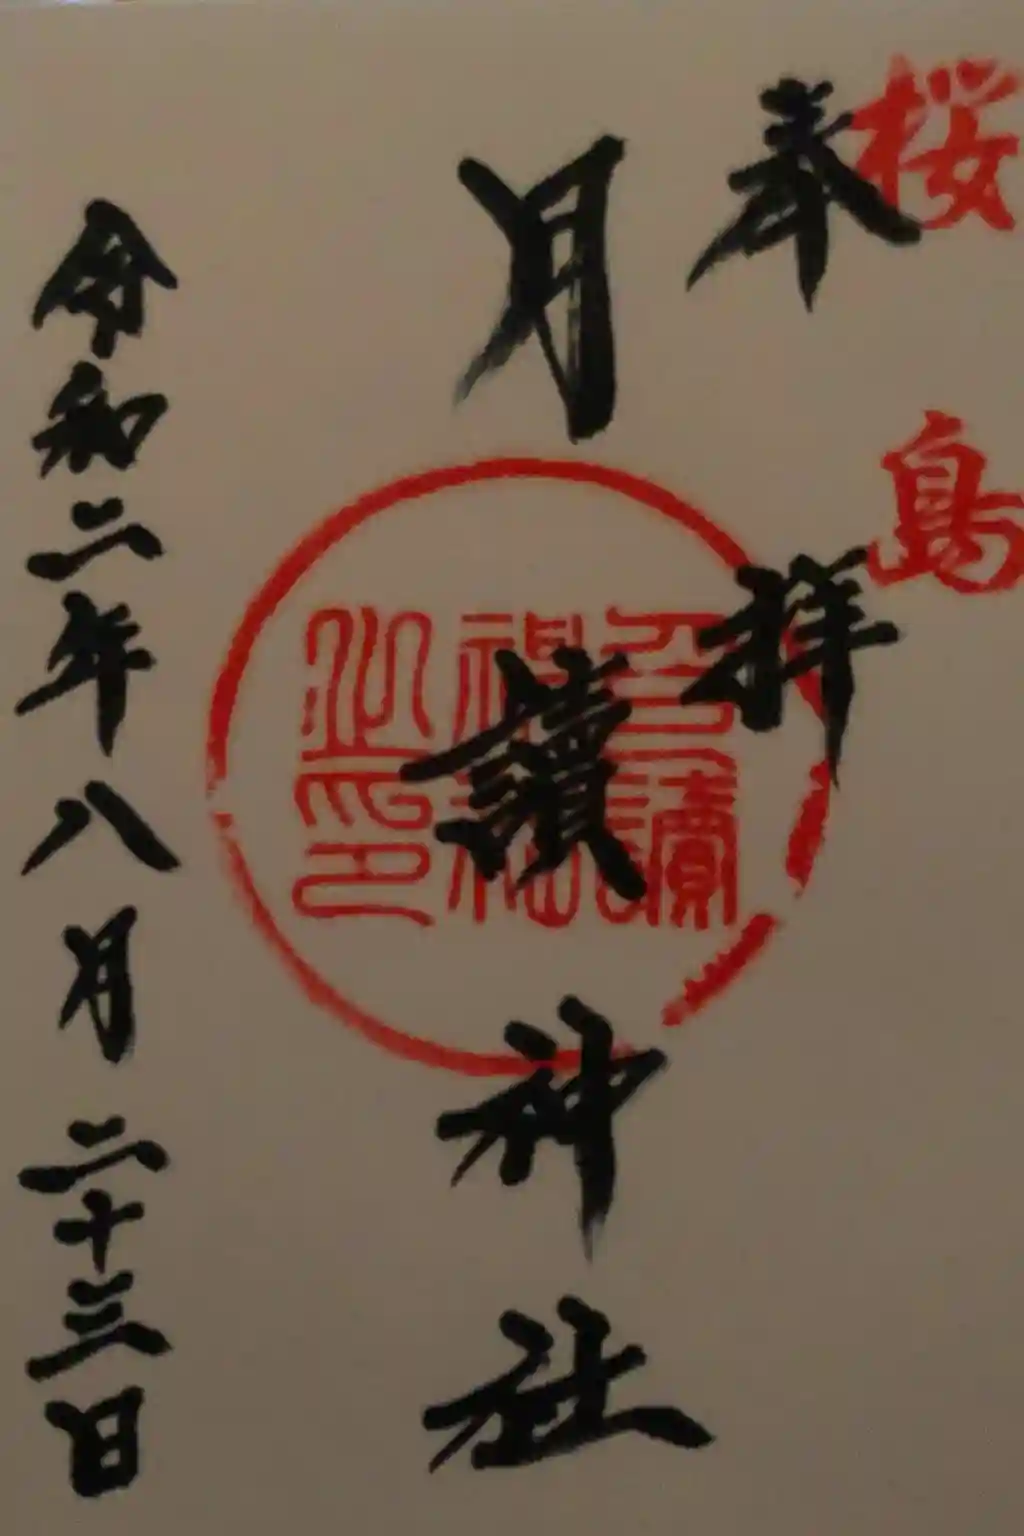 桜島
奉拝
月讀神社
月讀神社之印
令和二年八月二十三日